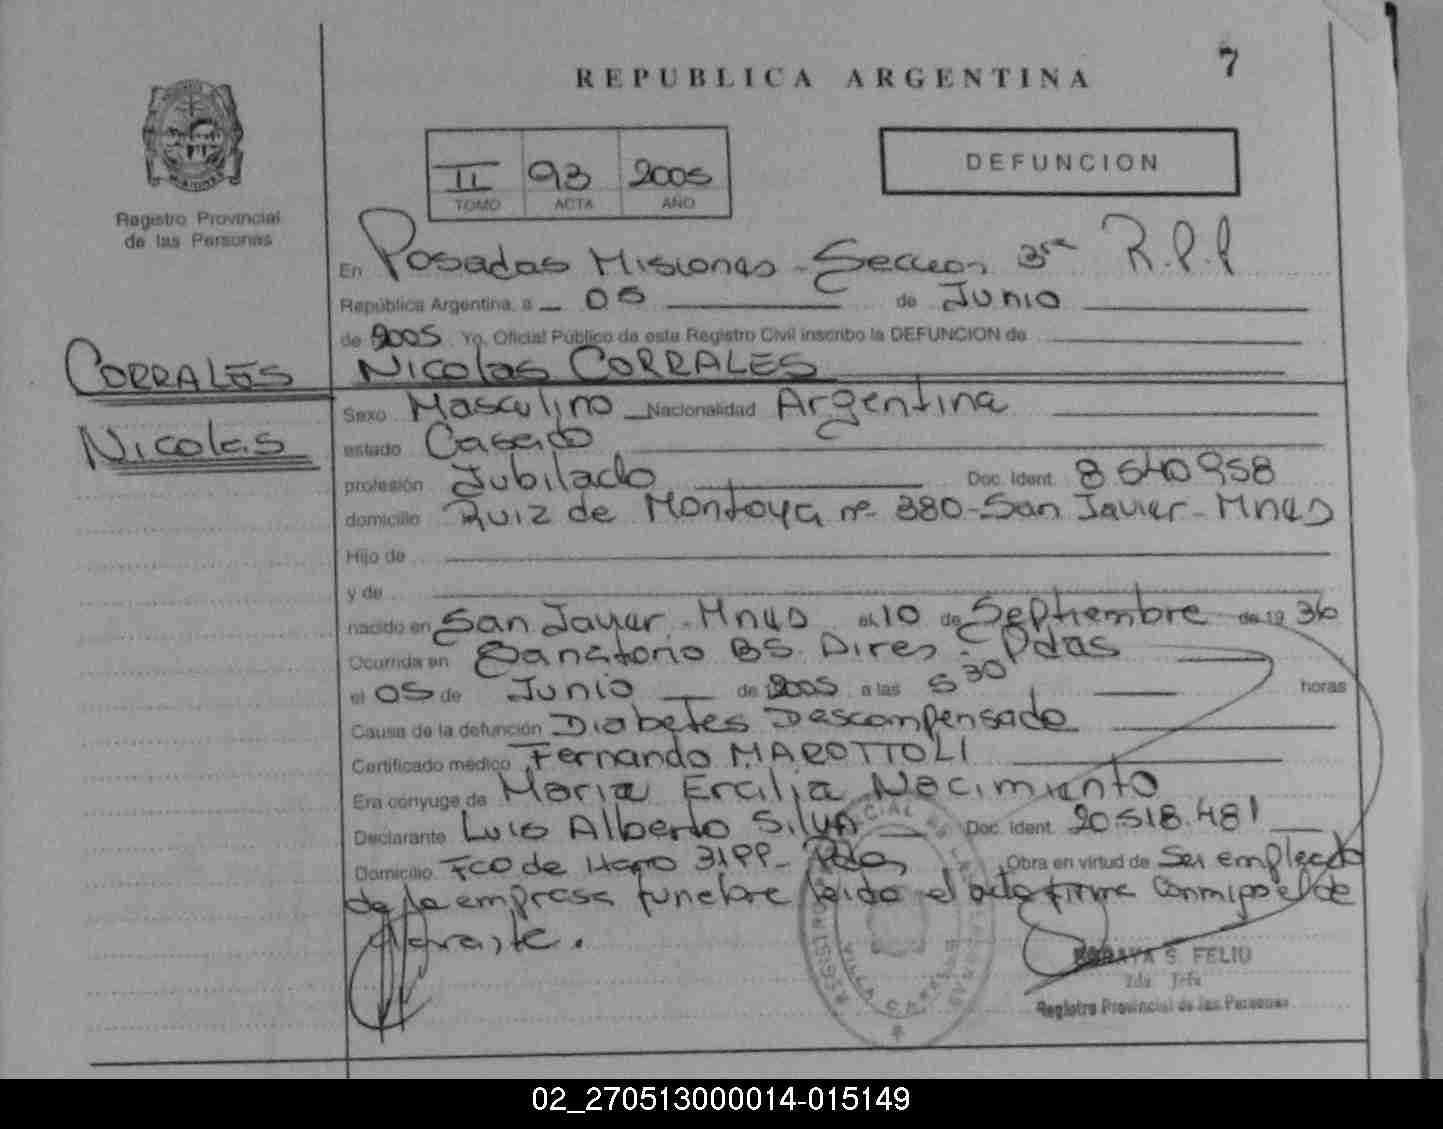 7
REPUBLICA ARGENTINA
II 93 2005
TOMO ACTA AÑO
DEFUNCION
Registro Provincial
de las Personas
En Posadas Misiones - Seccion 3ra R.P.P
República Argentina, a 05 de Junio
de 2005 Yo, Oficial Público de este Registro Civil inscribo la DEFUNCION de
CORRALES
Nicolas
Nicolas CORRALES
Sexo Masculino Nacionalidad Argentina
estado Casado
profesión Jubilado Doc. Ident. 8540958
domicilio Ruiz de Montoya nº 380 - San Javier - Mnes
Hijo de
y de
nacido en San Javier - Mnes el 10 de Septiembre de 19 36
Ocurrida en Sanatorio BS. Aires - Pdas
el 05 de Junio de 2005 a las 5 30 horas
Causa de la defunción Diabetes Descompensada
Certificado médico Fernando MAROTTOLI
Era cónyuge de Maria Ercilia Nacimiento
Declarante Luis Alberto Silva Doc. Ident. 20.518.481
Domicilio Fco de Haro 3199 - Pdas Obra en virtud de Ser empleado
de la empresa funebre leido el acta firma conmigo el de
clarante.
REGISTRO PROVINCIAL DE LAS PERSONAS
VILLA CABELLO
SORAYA S. FELIU
2da Jefa
Registro Provincial de las Personas
02_270513000014-015149